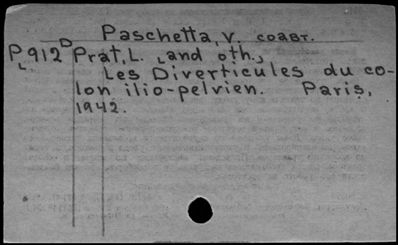 Paschetta, V. coавт.
P912D Prat, L. [and oth.]
L Les Diverticules du co-
lon ilio-pelvien. Paris,
1942.